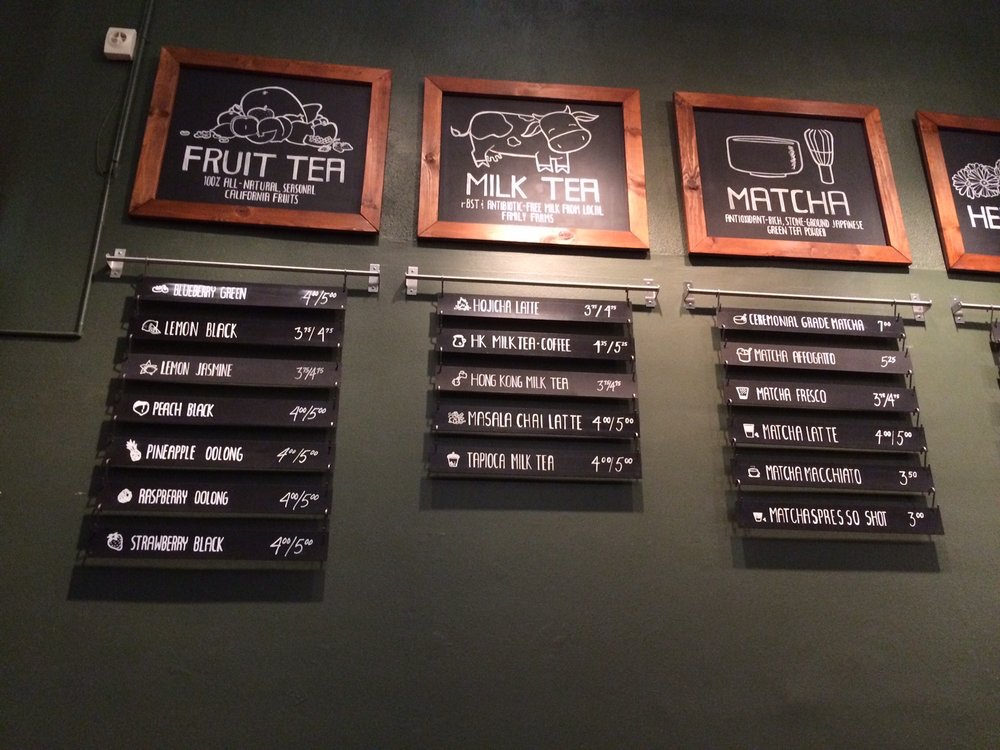 FRUIT TEA
100% ALL-NATURAL, SEASONAL
CALIFORNIA FRUITS
BLUEBERRY GREEN 4.00/5.00
LEMON BLACK 3.75/4.75
LEMON JASMINE 3.75/4.75
PEACH BLACK 4.00/5.00
PINEAPPLE OOLONG 4.00/5.00
RASPBERRY OOLONG 4.00/5.00
STRAWBERRY BLACK 4.00/5.00
MILK TEA
rBST & ANTIBIOTIC-FREE MILK FROM LOCAL
FAMILY FARMS
HOJICHA LATTE 3.75/4.75
HK MILK TEA-COFFEE 4.25/5.25
HONG KONG MILK TEA 3.75/4.75
MASALA CHAI LATTE 4.00/5.00
TAPIOCA MILK TEA 4.00/5.00
MATCHA
ANTIOXIDANT-RICH, STONE-GROUND JAPANESE
GREEN TEA POWDER
CEREMONIAL GRADE MATCHA 7.00
MATCHA AFFOGATO 5.25
MATCHA FRESCO 3.75/4.75
MATCHA LATTE 4.00/5.00
MATCHA MACCHIATO 3.50
MATCHASPRESSO SHOT 3.00
HE